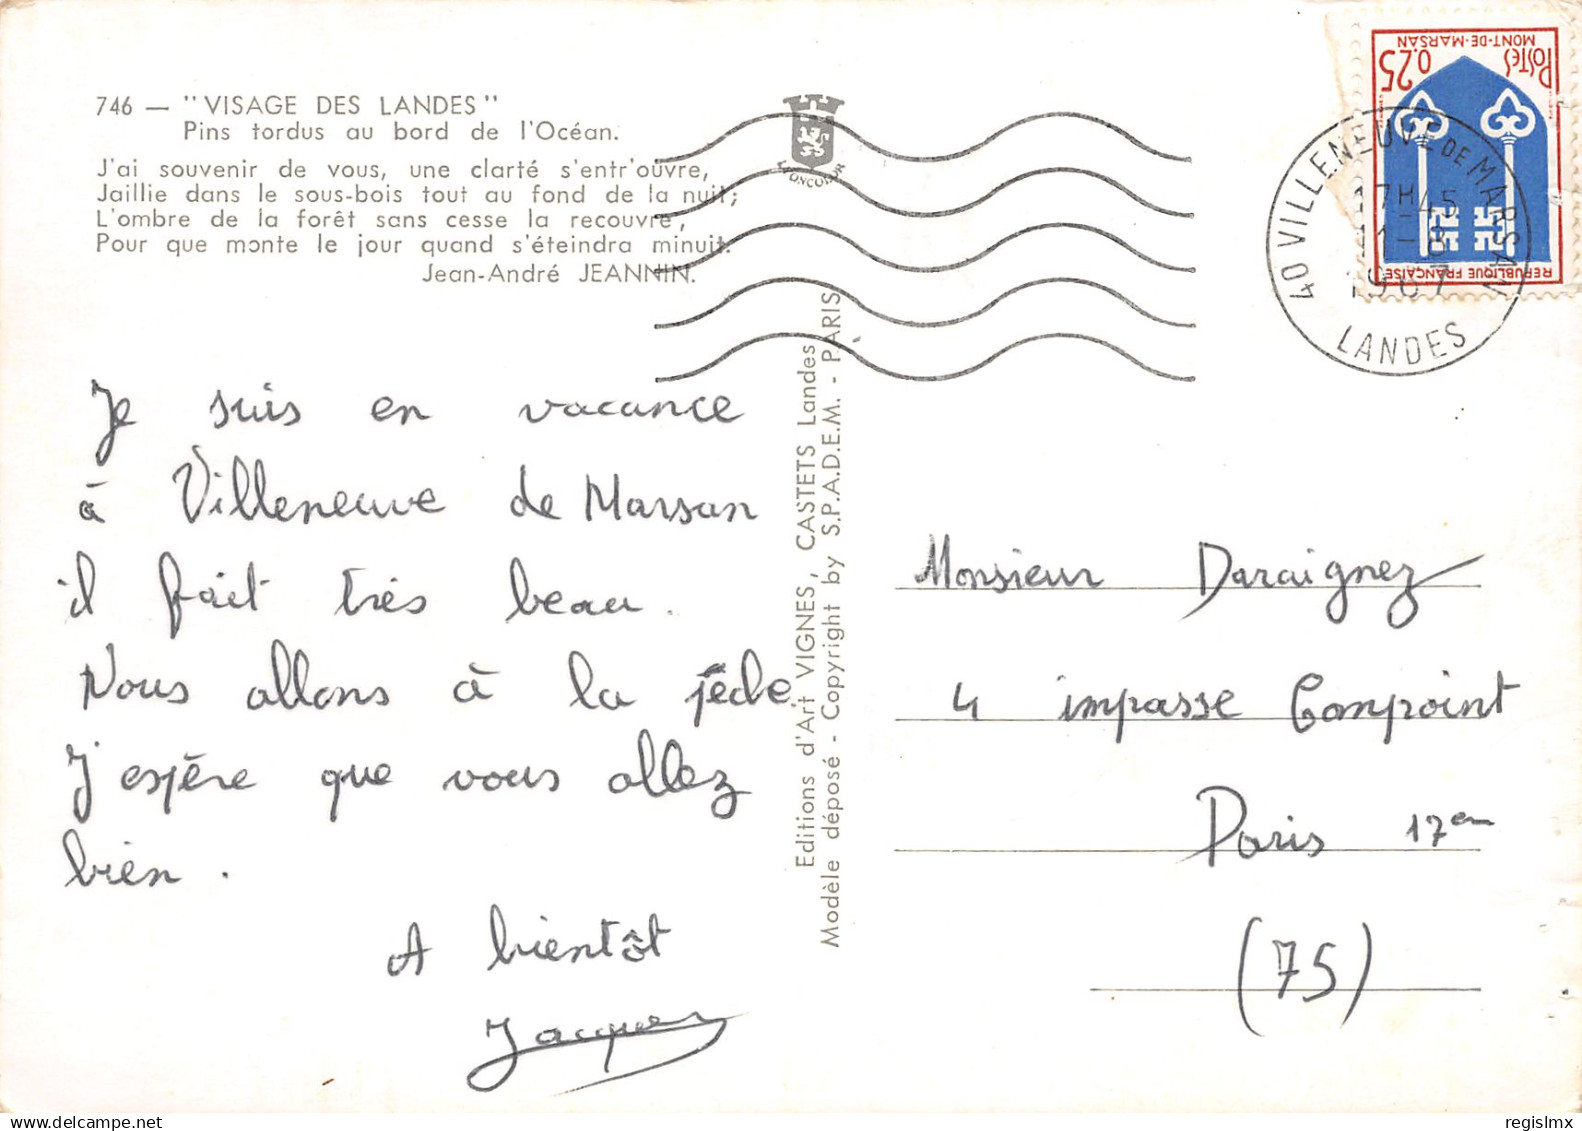 746 — "VISAGE DES LANDES"
Pins tordus au bord de l'Océan.
J'ai souvenir de vous, une clarté s'entr'ouvre,
Jaillie dans le sous-bois tout au fond de la nuit;
L'ombre de la forêt sans cesse la recouvre,
Pour que monte le jour quand s'éteindra minuit.
Jean-André JEANNIN.
LYONCOLOR
Je suis en vacance
à Villeneuve de Marsan
il fait très beau.
Nous allons à la pêche.
J'espère que vous allez
bien.
A bientôt
Jacques
Editions d'Art VIGNES, CASTETS Landes
Modèle déposé - Copyright by S.P.A.D.E.M. - PARIS
MONT-DE-MARSAN
POSTES
0.25
REPUBLIQUE FRANÇAISE
40 VILLENEUVE DE MARSAN
17H45
11-8
1967
LANDES
Monsieur Daraignez
4 impasse Compoint
Paris 17em
(75)
delcampe.net
regislmx